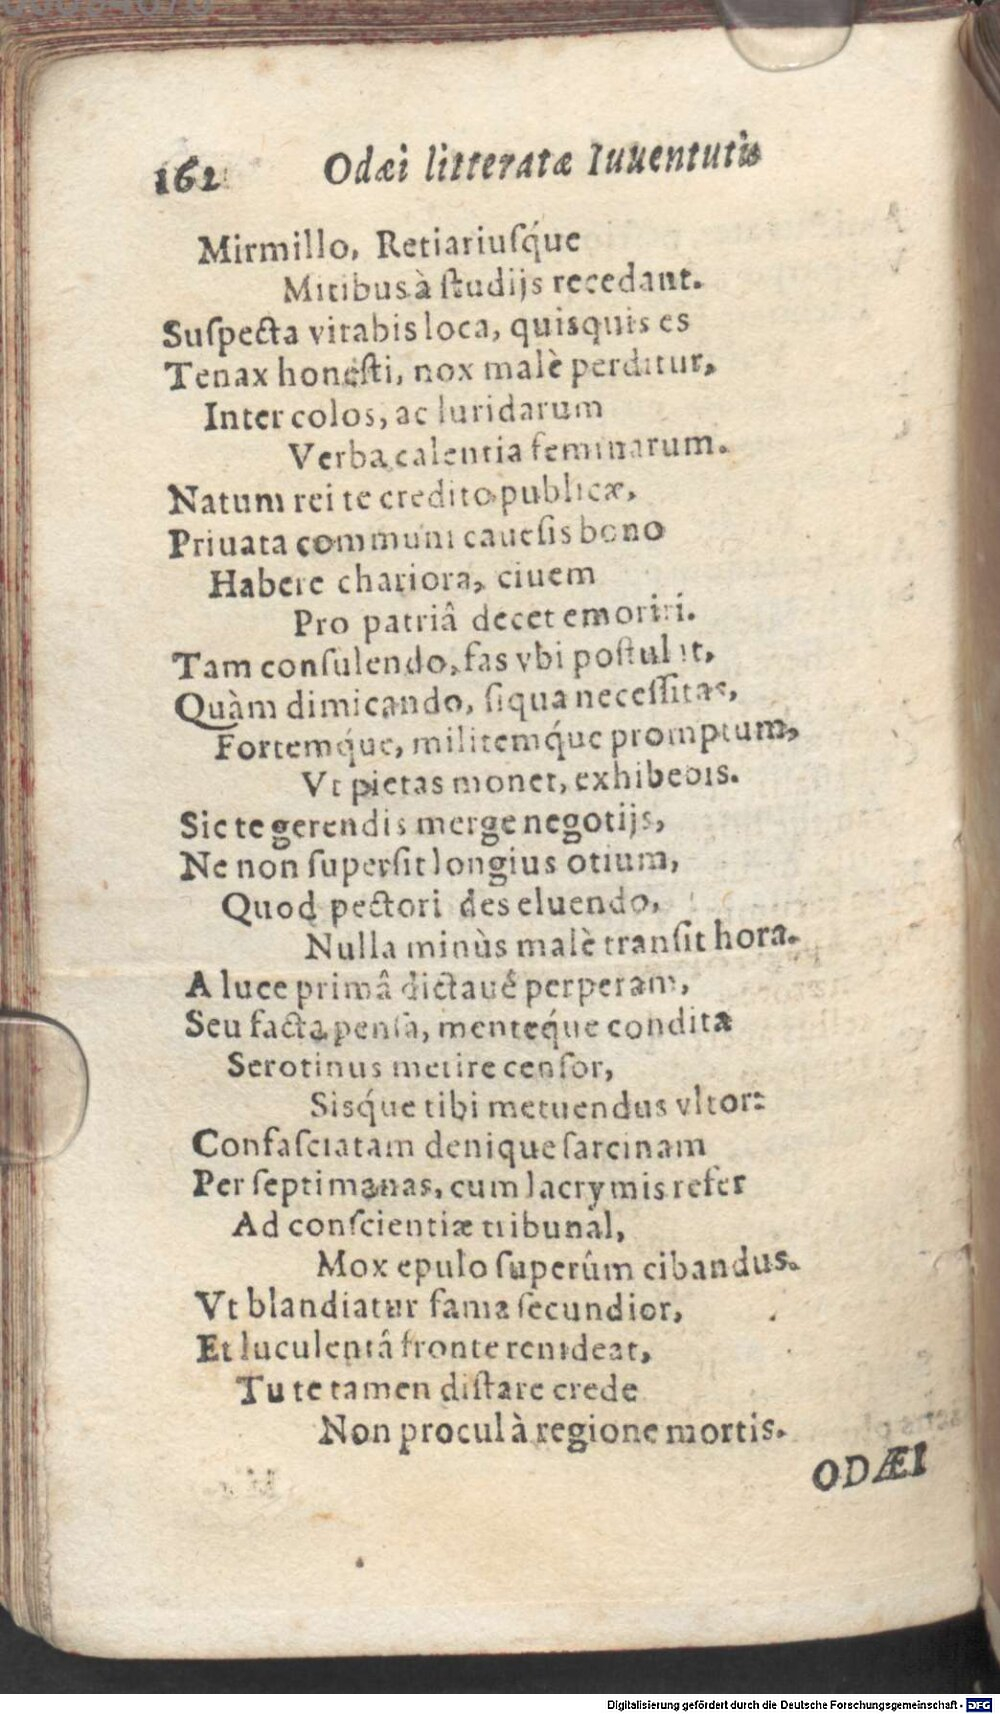 162 Odæi litteratæ Iuuentutis
Mirmillo, Retiariuſq́ue
Mitibus à ſtudijs recedant.
Suſpecta vitabis loca, quisquis es
Tenax honeſti, nox malè perditur,
Inter colos, ac luridarum
Verba calentia feminarum.
Natum rei te credito publicæ,
Priuata communi caueſis bono
Habere chariora, ciuem
Pro patriâ decet emoriri.
Tam conſulendo, fas vbi poſtulat,
Quàm dimicando, ſiqua neceſſitas,
Fortemq́ue, militemq́ue promptum,
Vt pietas monet, exhibeois.
Sic te gerendis merge negotijs,
Ne non ſuperſit longius otium,
Quod pectori des eluendo,
Nulla minùs malè tranſit hora.
A luce primâ dicta ué perperam,
Seu facta penſa, menteq́ue condita
Serotinus metire cenſor,
Sisq́ue tibi metuendus vltor:
Confaſciatam denique ſarcinam
Per ſeptimanas, cum lacrymis refer
Ad conſcientiæ tribunal,
Mox epulo ſuperûm cibandus.
Vt blandiatur fama ſecundior,
Et luculentâ fronte renideat,
Tu te tamen diſtare crede
Non procul à regione mortis.
ODÆI
Digitalisierung gefördert durch die Deutsche Forschungsgemeinschaft - DFG